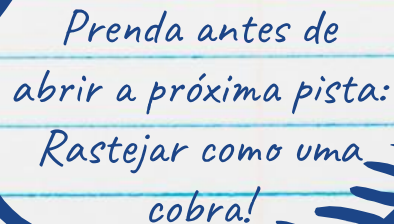 Prenda antes de
abrir a próxima pista:
Rastejar como uma
cobra!